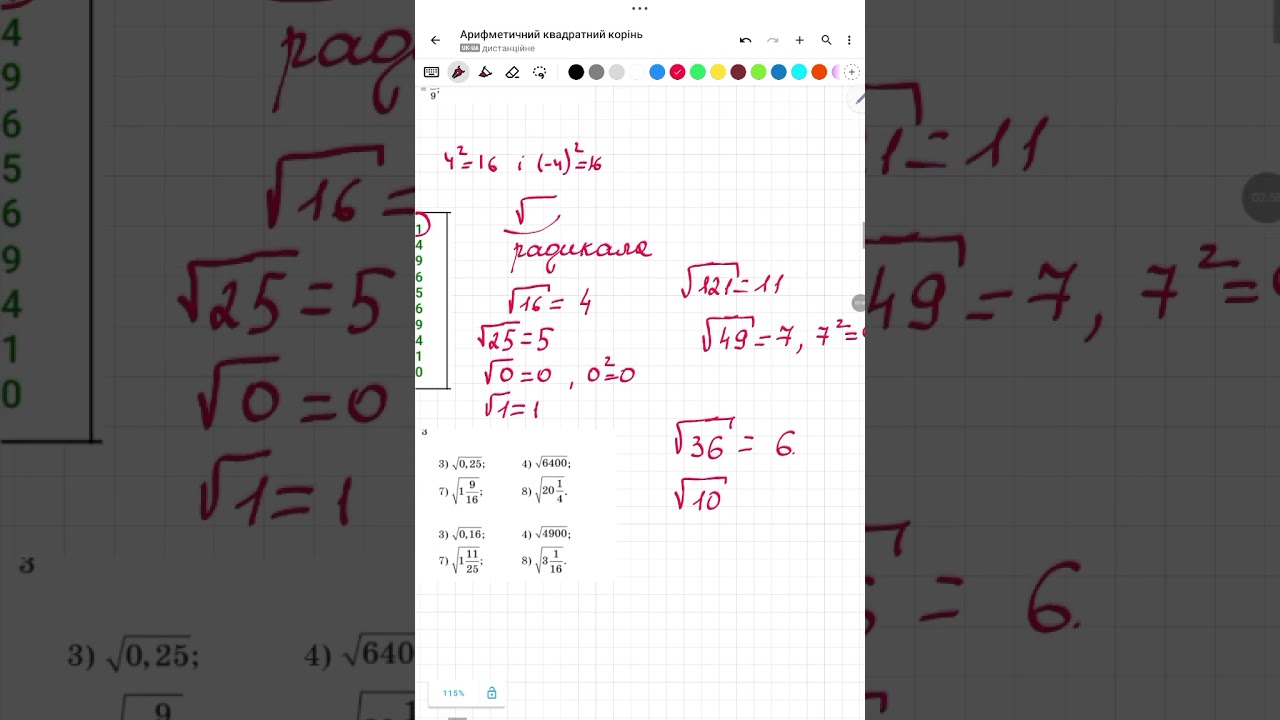 Арифметичний квадратний корінь
UK-UA дистанційне
= /9;
4²=16 і (-4)²=16
√
радикала
√16 = 4
√25=5
√0=0 , 0²=0
√1=1
√121=11
√49=7, 7²=
√36 = 6.
√10
1
4
9
6
5
6
9
4
1
0
3
3) √0,25; 4) √6400;
7) √1 9/16; 8) √20 1/4.
3) √0,16; 4) √4900;
7) √1 11/25; 8) √3 1/16.
115%